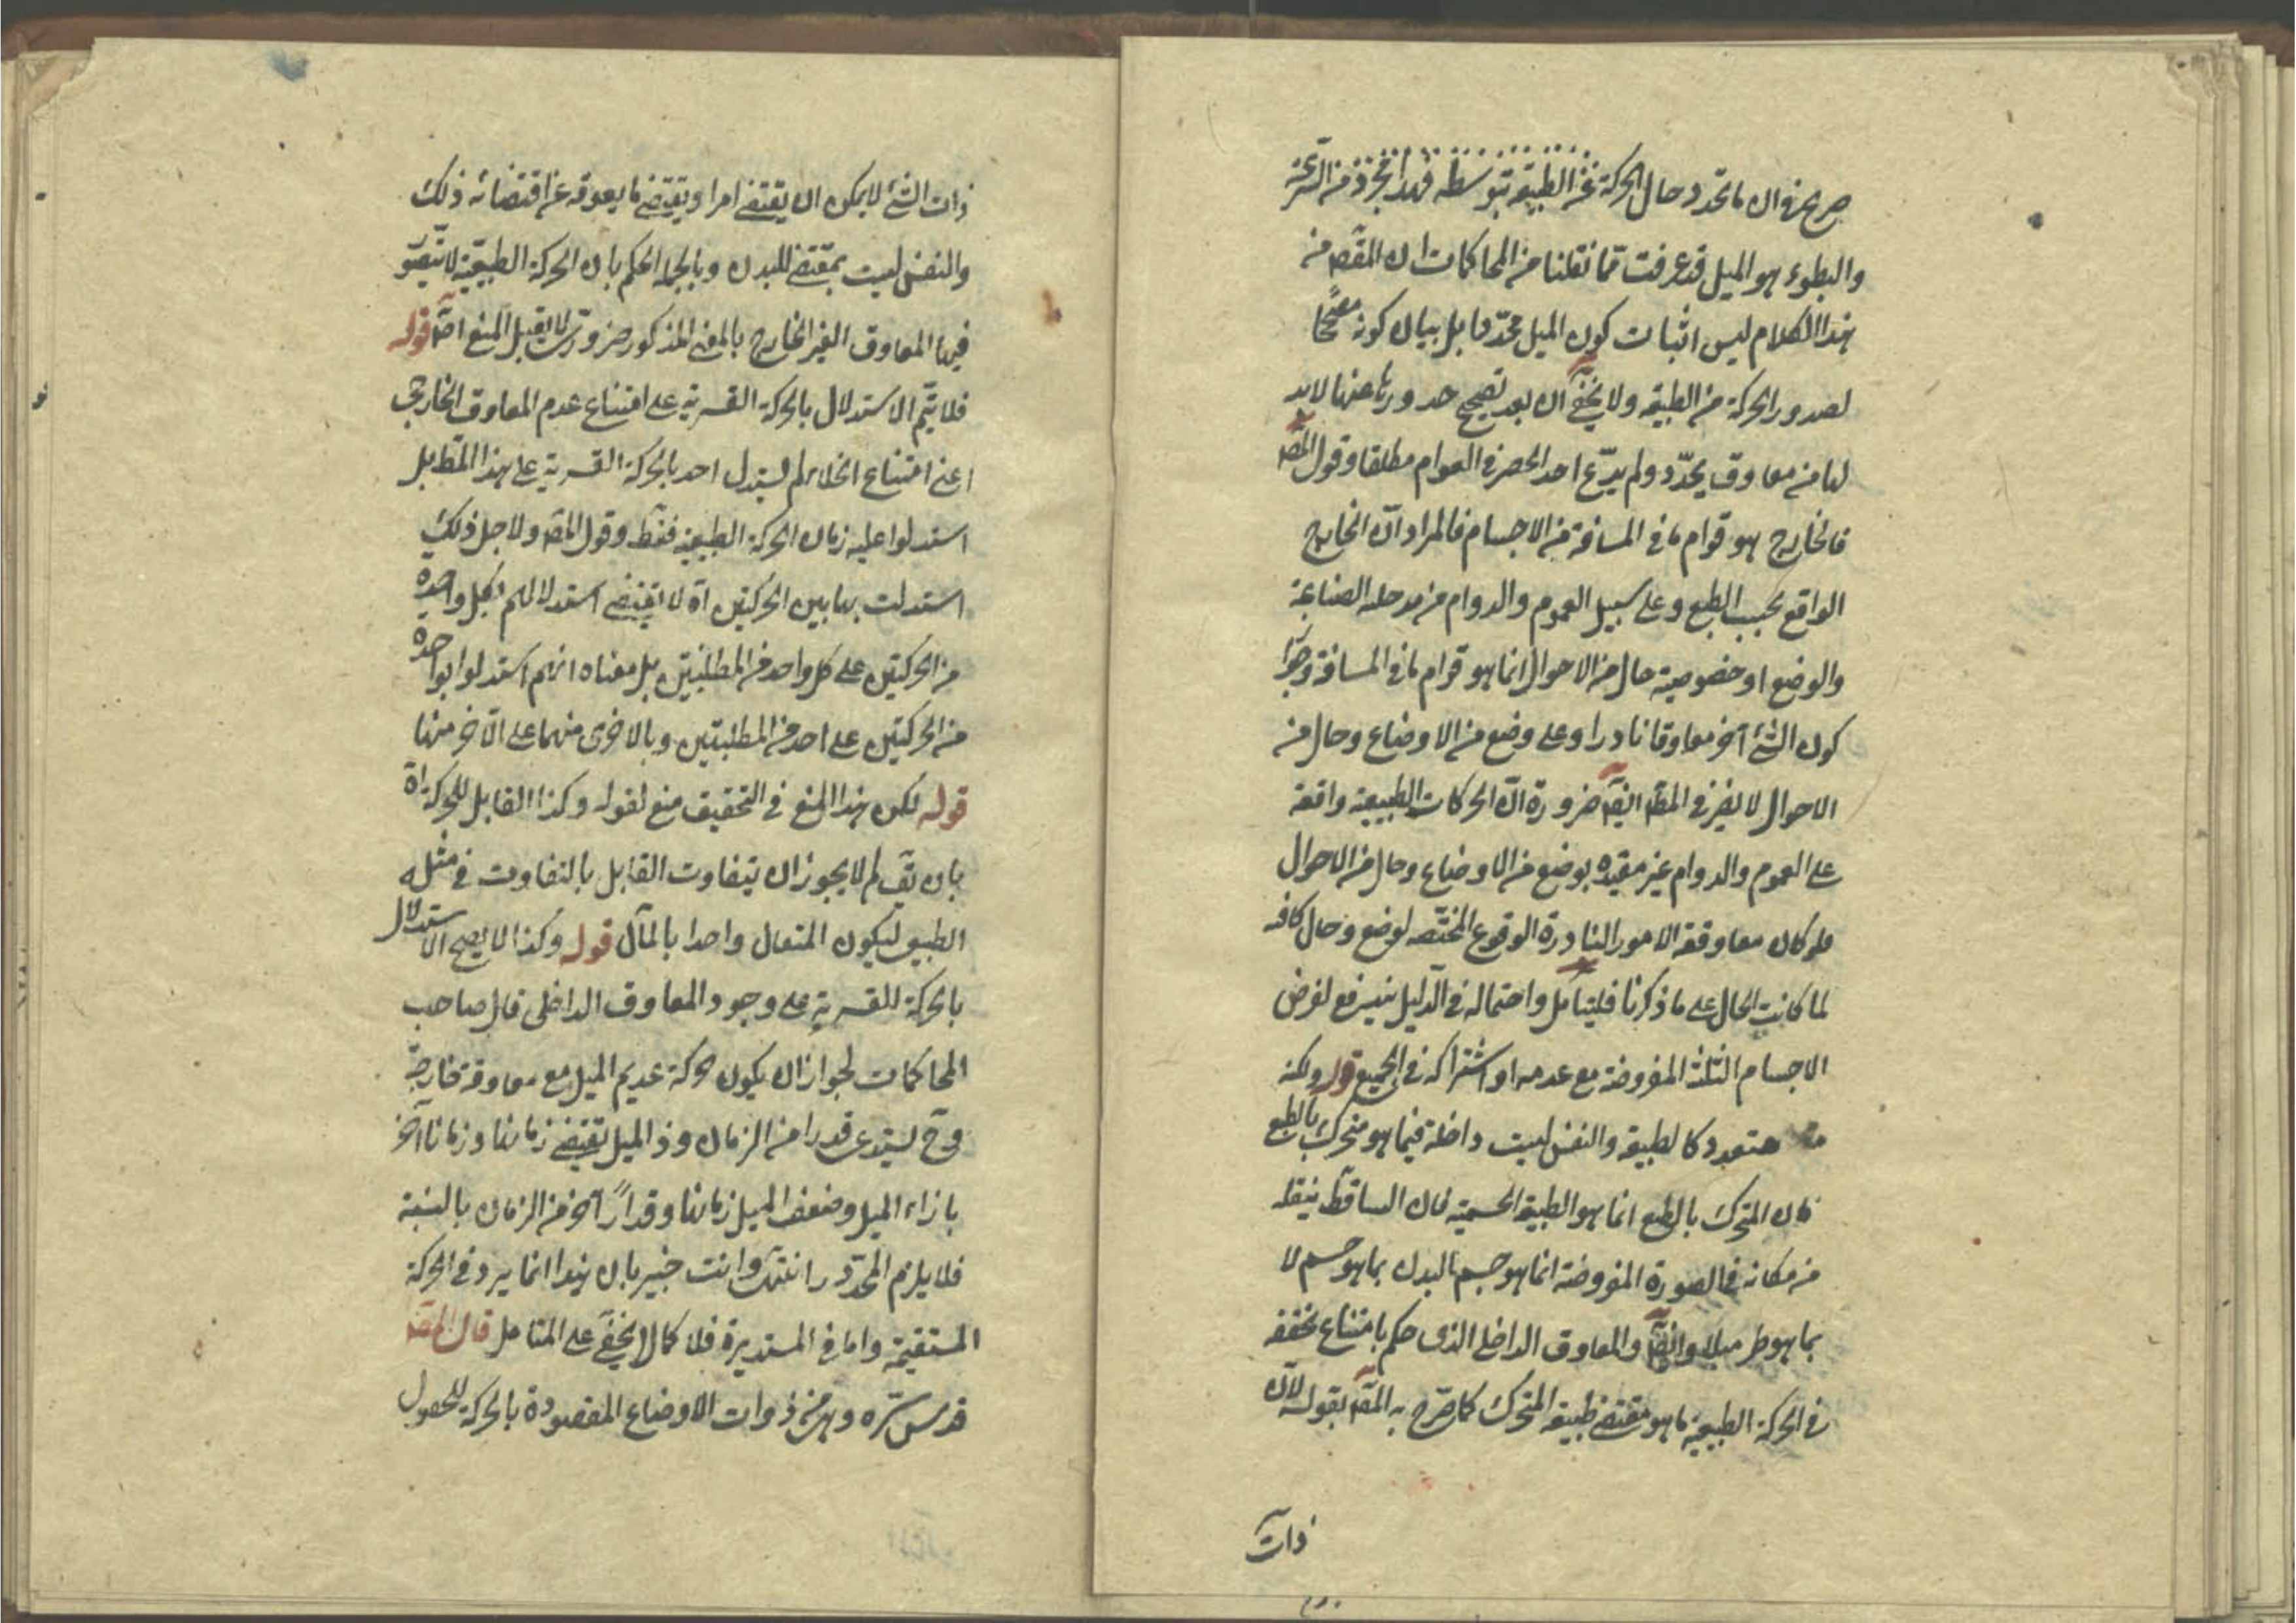 صريح في ان ما تحدد حال الحركة عن الطبيعة بتوسطه فهذا نحو ذ من السرعة
والبطوء هو الميل قد عرفت مما نقلنا من المحاكمات ان المقصد من
هذا الكلام ليس اثبات كون الميل محددا بل بيان كونه مصححا
لصدور الحركة من الطبيعة ولا يخفى ان بعد تصحيح صدورها عنها لابد
لها من معاوق يحدد ولم يدع احد الحصر في القوام مطلقا وقول المصـ
فالخارج هو قوام ما في المسافة من الاجسام فالمراد ان الخارج
الواقع بحسب الطبع وعلى سبيل العموم والدوام من مدخلة الصناعة
والوضع او خصوصية حال من الاحوال انما هو قوام ما في المسافة وجواز
كون الشئ آخر معاوقا نادرا وعلى وضع من الاوضاع وحال من
الاحوال لا يضر في المقـ ايضـ ضرورة ان الحركات الطبيعية واقعة
على العموم والدوام غير مقيده بوضع من الاوضاع وحال من الاحوال
فلو كان معاوقة الامور النادرة الوقوع المختصه لوضع وحال كافه
لما كانت الحال على ما ذكرنا فليتامل واحتماله في الدليل يندفع لفرض
الاجسام الثلثة المفروضة مع عدمه او اشتراكه في الجميع قوله ولكنه
متعدد كالطبيعة والنفس ليست داخلة فيما هو متحرك بالطبع
فان المتحرك بالطبع انما هو الطبيعة الجسمية فان الساقط بثقله
من مكانه في الصورة المفروضة انما هو جسم البدن بما هو جسم لا
بما هو ميلا وايضـ والمعاوق الداخلى الذى حكم بامتناع تحققه
في الحركة الطبيعية ما هو مقتضى طبيعة المتحرك كما صرح به المصـ بقوله لان
ذات
ذات الشئ لا يمكن ان يقتضى امرا ويقتضى ما يعوقه عن اقتضائه ذلك
والنفس ليست بمقتضى للبدن وبالجملة الحكم بان الحركة الطبيعية لا يتصور
فيها المعاوق الغير الخارج بالمعنى المذكور ضرورى لا يقبل المنع اصـ قوله
فلا يتم الاستدلال بالحركة القسرية على امتناع عدم المعاوق الخارجى
اعنى امتناع الخلاء لم يستدل احد بالحركة القسرية على هذا المط بل
استدلوا عليه زمان الحركة الطبيعية فقط وقول المصـ ولاجل ذلك
استدلت بها بين الحركتين اه لا يقتضى استدلالهم بكل واحدة
من الحركتين على كل واحد من المطلبين بل معناه انهم استدلوا بواحدة
من الحركتين على احد من المطلبين وبالاخرى منهما على الآخر منها
قوله لكن هذا المنع في التحقيق منع لقوله وكذا القابل للحركة اه
بان يقـ لم لا يجوز ان يتفاوت القابل بالتفاوت في مثله
الطبيعى ليكون المنعان واحدا بالمآل قوله وكذا لا يصح الاستدلال
بالحركة للقسرية على وجود المعاوق الداخلى قال صاحب
المحاكمات لجواز ان يكون حركة عديم الميل مع معاوقة خارجية
وح يستدعى قدرا من الزمان وذا الميل يقتضى زمانا وزمانا آخر
بازاء الميل وضعف الميل زمانا وقدارا آخر من الزمان بالنسبة
فلا يلزم المحذور انتهى وانت خبير بان هذا انما يرد في الحركة
المستقيمة واما في المستديرة فلا كما لا يخفى على المتامل قال المصـ
قدس سره وهى من ذوات الاوضاع المقصودة بالحركة للحصول